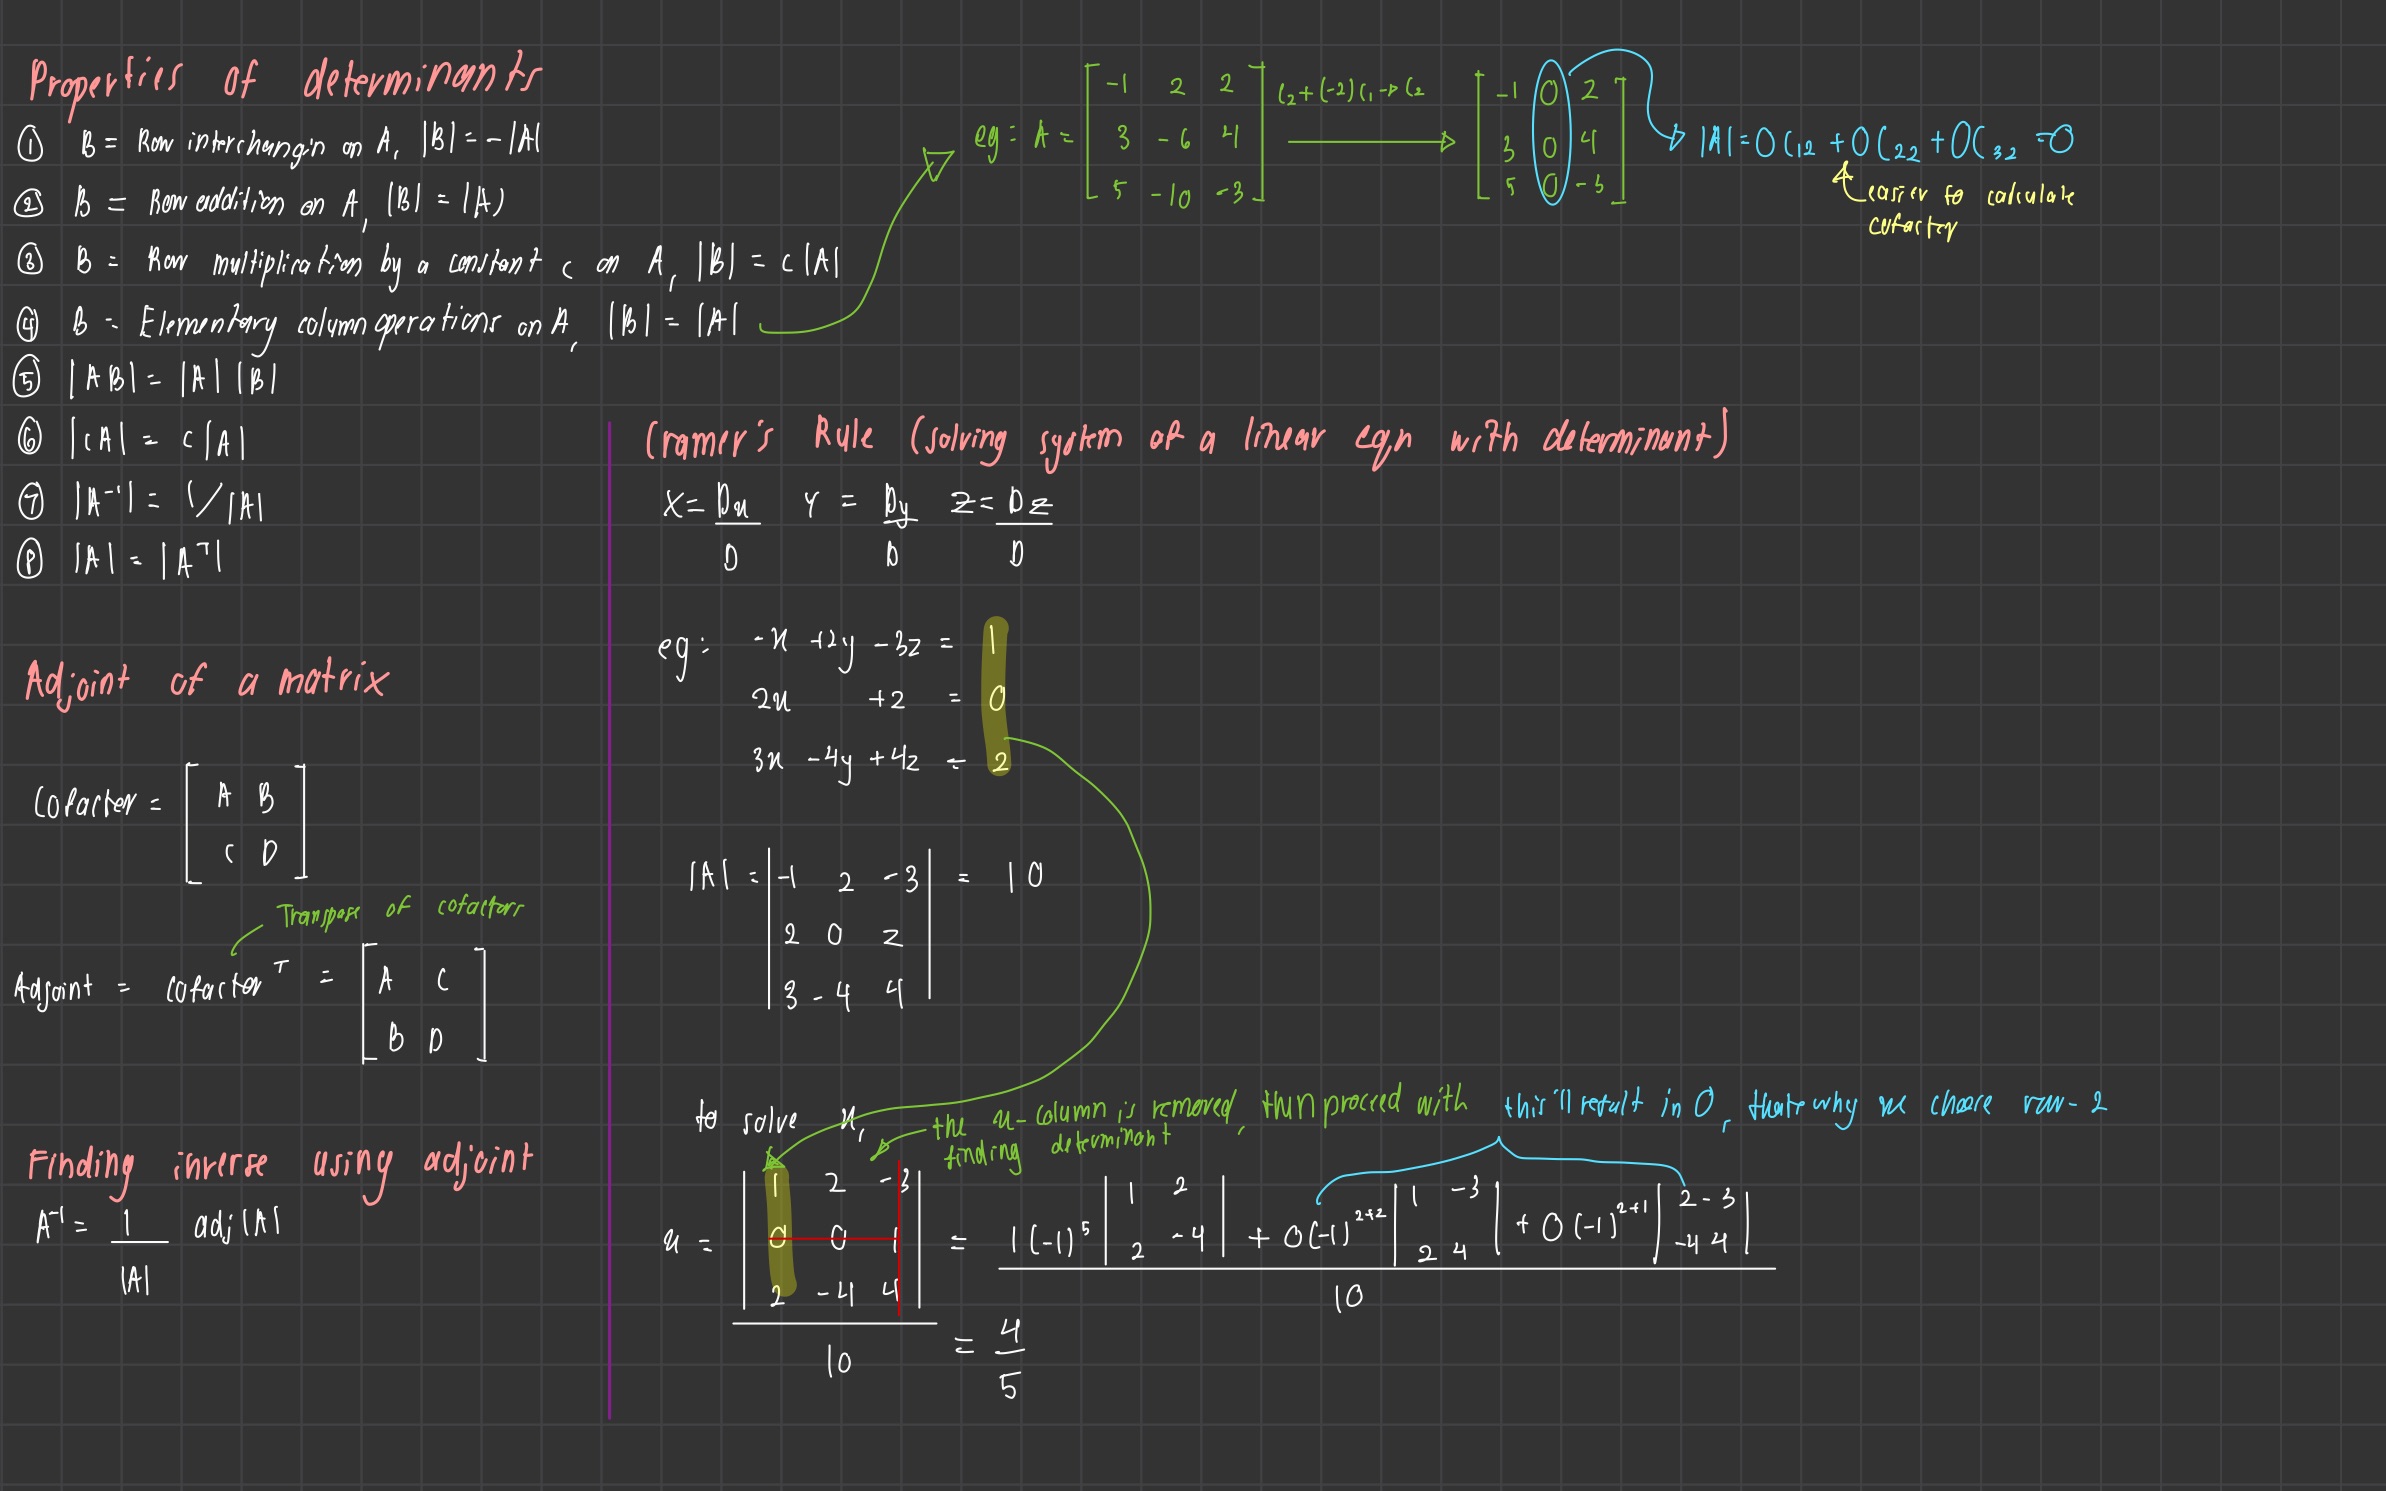 Properties of determinants
① B = Row interchangin on A, |B| = -|A|
② B = Row addition on A, |B| = |A|
③ B = Row multiplication by a constant c on A, |B| = c|A|
④ B = Elementary column operations on A, |B| = |A|
⑤ |AB| = |A| |B|
⑥ |cA| = c|A|
⑦ |A⁻¹| = 1/|A|
⑧ |A| = |Aᵀ|
eg: A = [ -1 2 2 ] C₂+(-2)C₁→C₂ [ -1 0 2 ]
[ 3 -6 4 ] → [ 3 0 4 ] → |A| = 0C₁₂ + 0C₂₂ + 0C₃₂ = 0
[ 5 -10 -3 ] [ 5 0 -3 ]
easier to calculate
cofactor
Adjoint of a matrix
Cofactor = [ A B ]
[ C D ]
Transpose of cofactors
Adjoint = cofactorᵀ = [ A C ]
[ B D ]
Finding inverse using adjoint
A⁻¹ = 1 adj|A|
|A|
Cramer's Rule (solving system of a linear eqn with determinant)
x = Dx Y = Dy Z = Dz
D D D
eg: -x +2y -3z = 1
2x +z = 0
3x -4y +4z = 2
|A| = | -1 2 -3 | = 10
| 2 0 2 |
| 3 -4 4 |
to solve x,
the x-column is removed, then proceed with
finding determinant
this'll result in 0, thats why we choose row-2
x = | 1 2 -3 | = 1(-1)⁵ | 1 2 | + 0(-1)²⁺² | 1 -3 | + 0(-1)²⁺¹ | 2 -3 |
| 0 0 1 | | 2 -4 | | 2 4 | | -4 4 |
| 2 -4 4 |
10 10
= 4
5